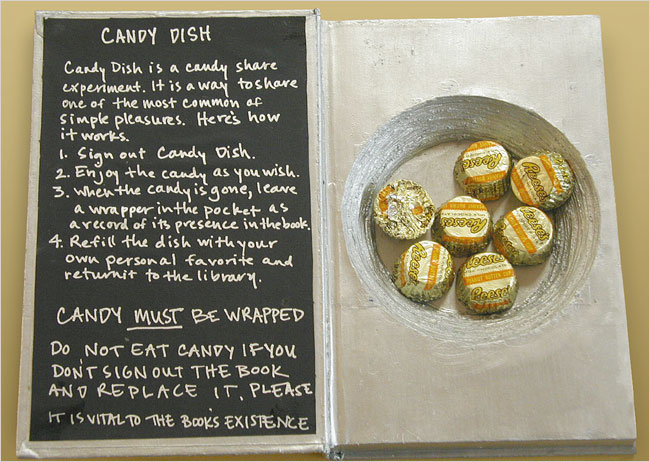 CANDY DISH
Candy Dish is a candy share
experiment. It is a way to share
one of the most common of
simple pleasures. Here's how
it works.
1. Sign out Candy Dish.
2. Enjoy the candy as you wish.
3. When the candy is gone, leave
a wrapper in the pocket as
a record of its presence in the book.
4. Refill the dish with your
own personal favorite and
return it to the library.
CANDY MUST BE WRAPPED
DO NOT EAT CANDY IF YOU
DON'T SIGN OUT THE BOOK
AND REPLACE IT, PLEASE
IT IS VITAL TO THE BOOK'S EXISTENCE
Reese's
Reese's
Reese's
Reese's
Reese's
Reese's